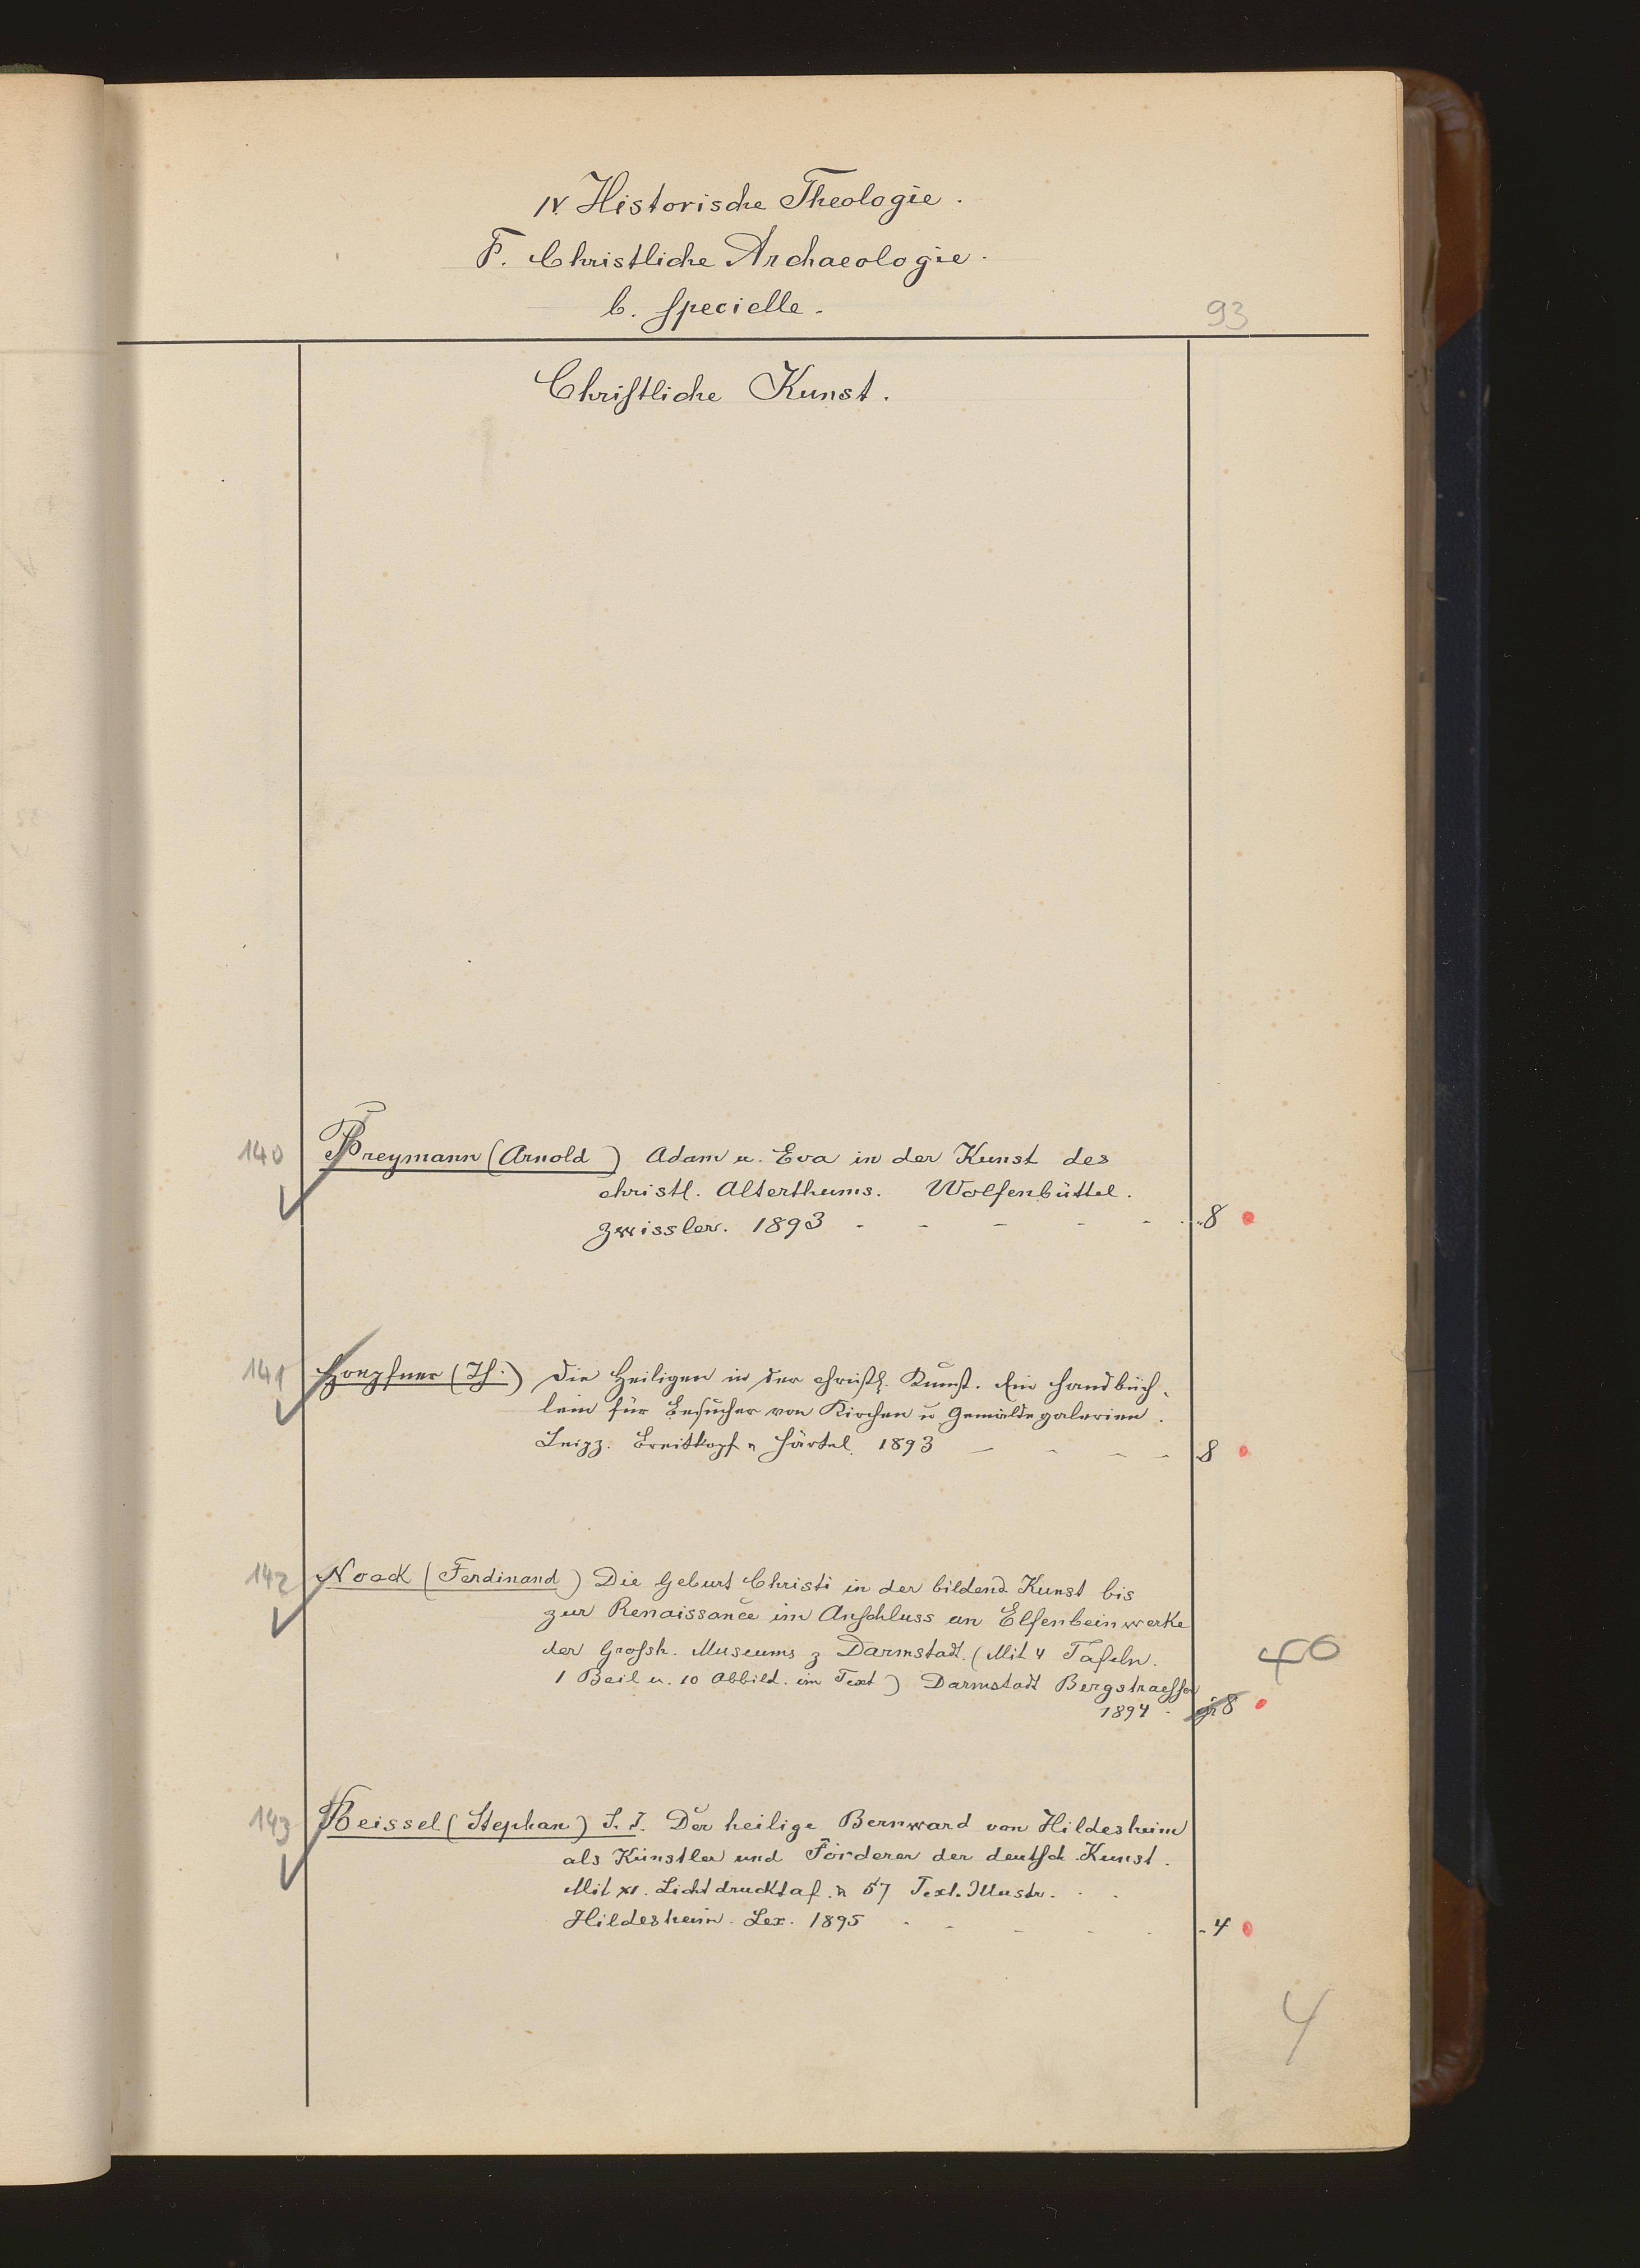 IV. Historische Theologie.
F. Christliche Archaeologie.
b. specielle.
93
Christliche Kunst.
140 Breymann (Arnold) Adam u. Eva in der Kunst des
christl. Alterthums. Wolfenbüttel.
Zwissler. 1893 - - - - - 8
141 Hoepfner (Th.) Die Heiligen in der christl. Kunst. Ein Handbüch-
lein für Besucher von Kirchen u Gemäldegalerien.
Leipz. Breitkopf u Härtel. 1893 - - - - 8
142 Noack (Ferdinand) Die Geburt Christi in der bildend. Kunst bis
zur Renaissance im Anschluss an Elfenbeinwerke
der Grossh. Museums z Darmstadt. (Mit 4 Tafeln.
40
1 Beil u. 10 Abbild. im Text) Darmstadt Bergstraesser
1894 - gr 8
143 Beissel (Stephan) S. J. Der heilige Bernward von Hildesheim
als Künstler und Förderer der deutsch. Kunst.
Mit XI. Lichtdrucktaf. u 57 Text. Illustr. . .
Hildesheim. Lex. 1895 - - - - - 4
4